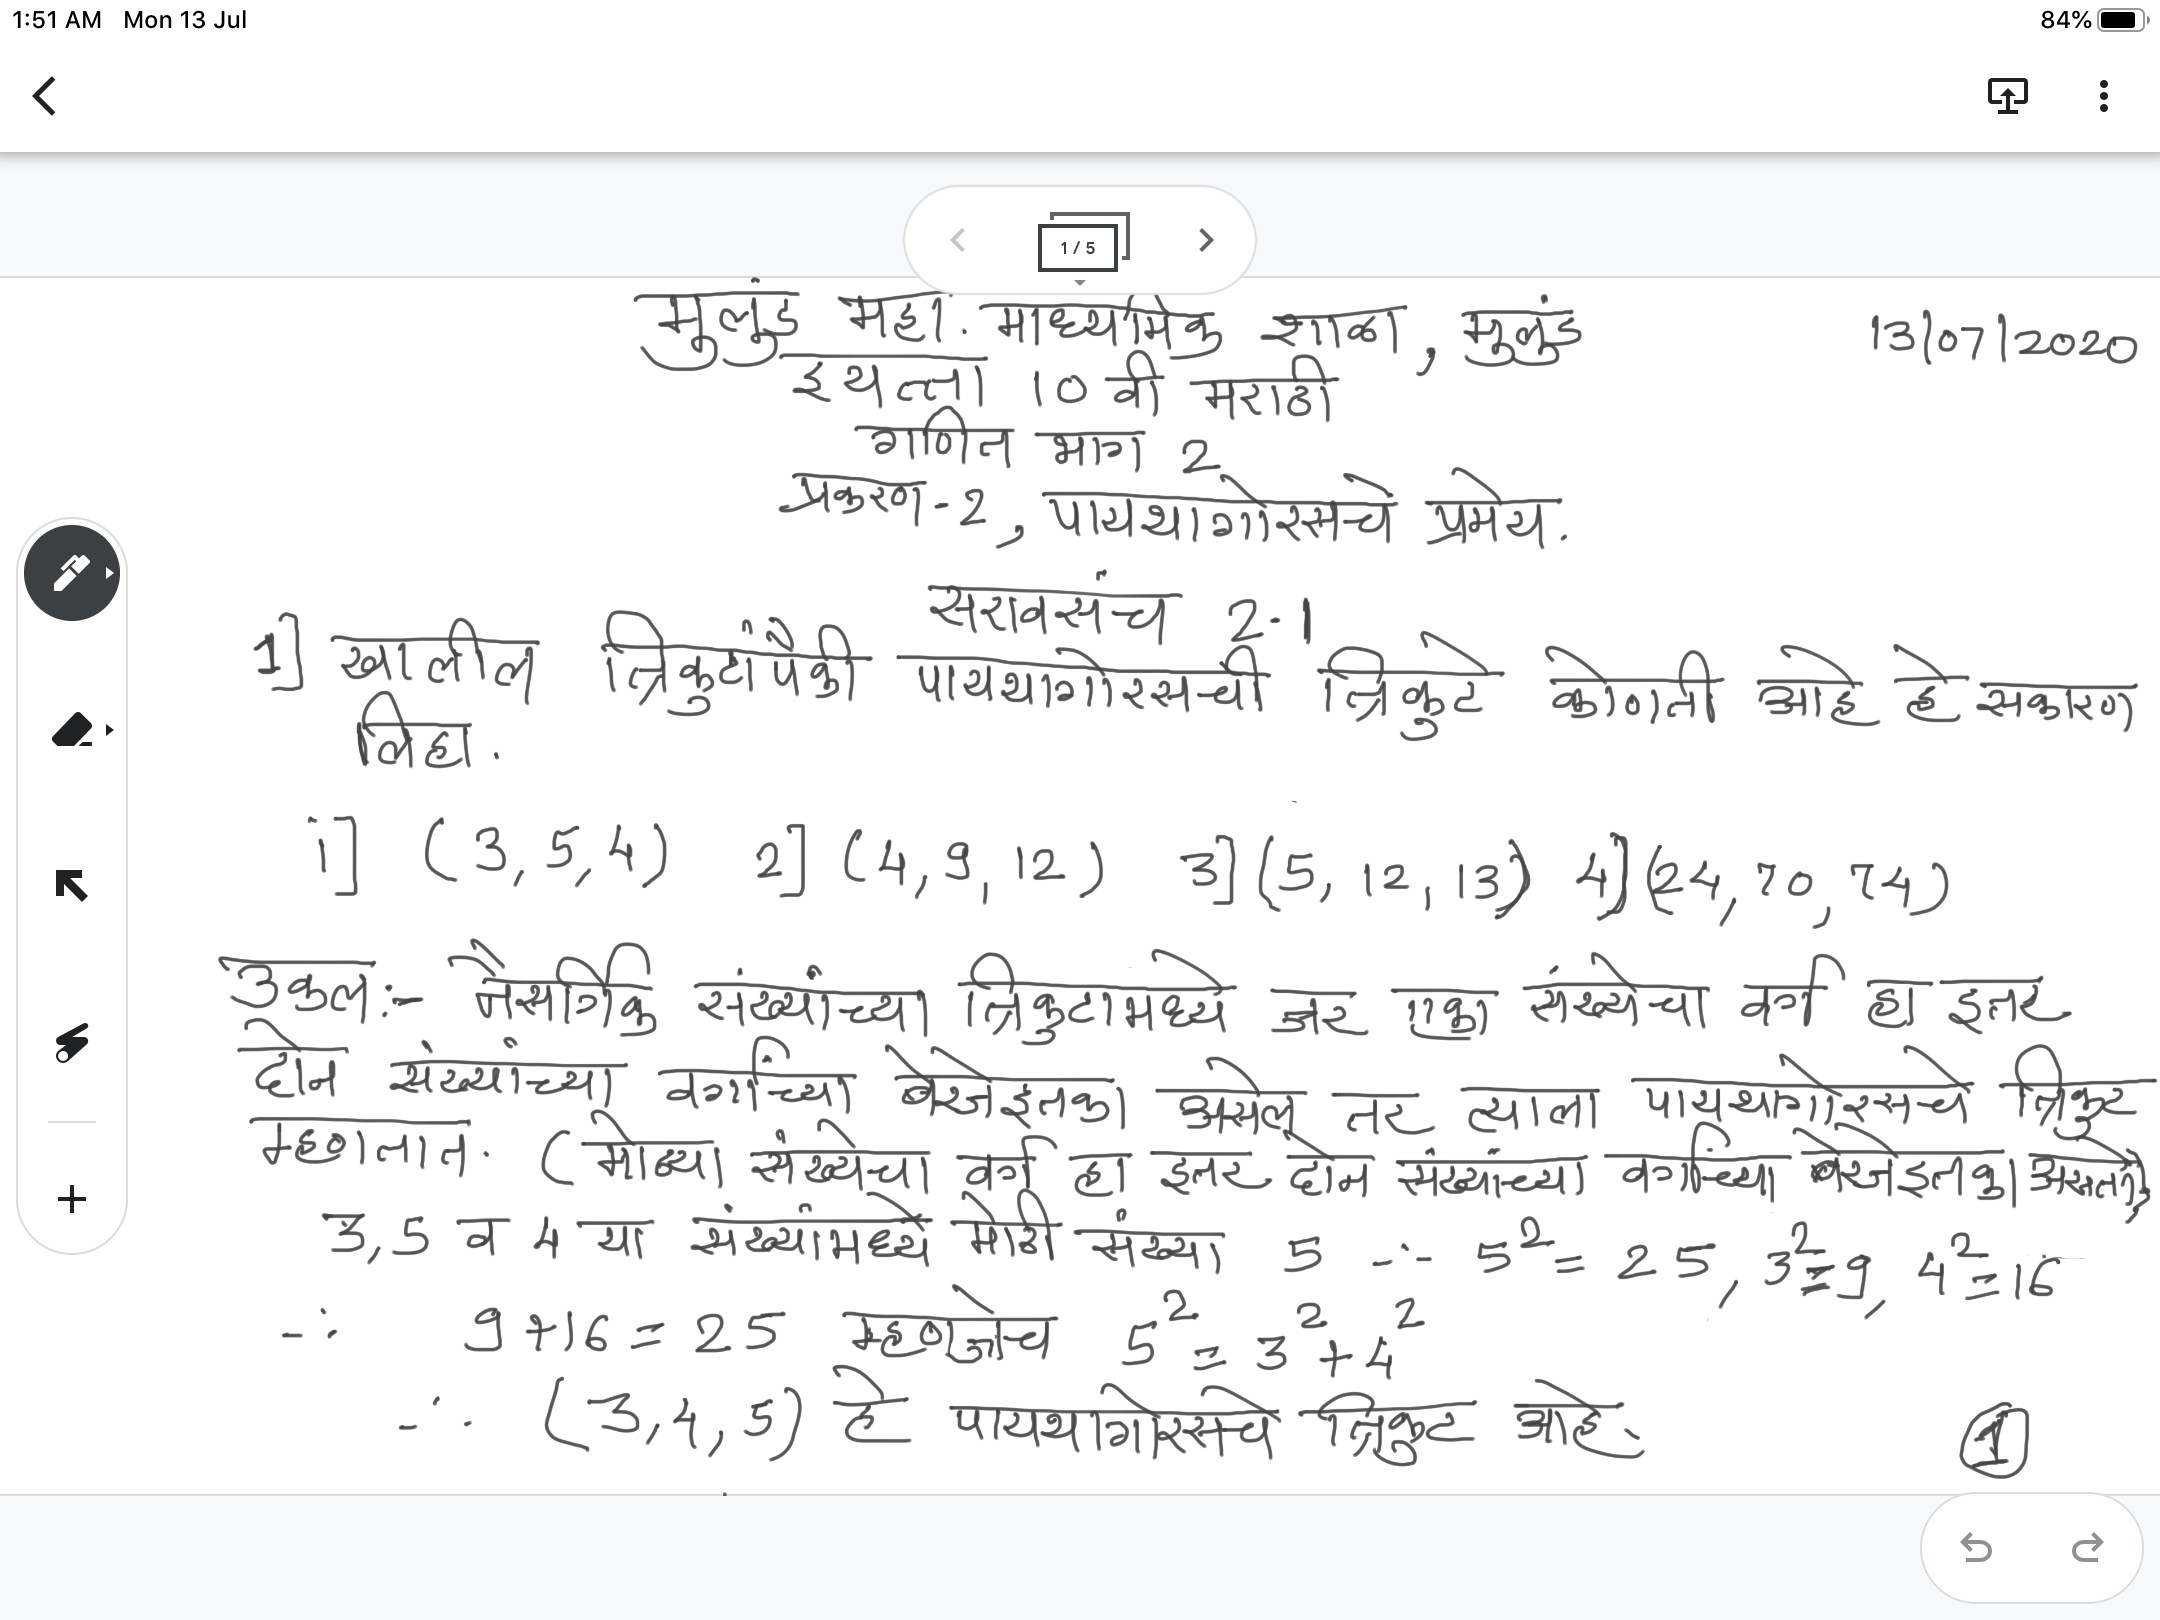 1:51 AM Mon 13 Jul 84%
1 / 5
मुलुंड महा. माध्यमिक शाळा, मुलुंड 13/07/2020
इयत्ता 10 वी मराठी
गणित भाग 2
प्रकरण-2, पायथागोरसचे प्रमेय.
सरावसंच 2.1
1] खालील त्रिकुटांपैकी पायथागोरसची त्रिकुटे कोणती आहे हे सकारण
लिहा.
i] (3,5,4) 2] (4,9,12) 3] (5,12,13) 4] (24,70,74)
उकल:- नैसर्गिक संख्यांच्या त्रिकुटामध्ये जर एका संख्येचा वर्ग हा इतर
दोन संख्यांच्या वर्गाच्या बेरजेइतका असेल तर त्याला पायथागोरसचे त्रिकुट
म्हणतात. (मोठ्या संख्येचा वर्ग हा इतर दोन संख्यांच्या वर्गाच्या बेरजेइतका असतो)
3,5 व 4 या संख्यांमध्ये मोठी संख्या 5 ∴ 5² = 25, 3² = 9, 4² = 16
∴ 9+16 = 25 म्हणजेच 5² = 3² + 4²
∴ (3,4,5) हे पायथागोरसचे त्रिकुट आहे.
1